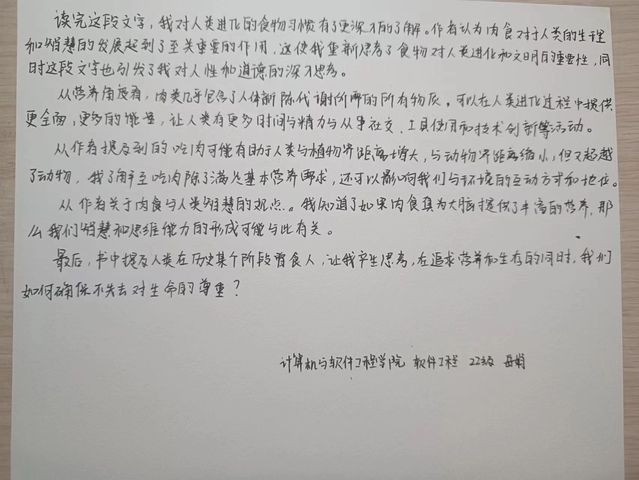 读完这段文字，我对人类进化的食物习惯有了更深入的了解。作者认为肉食对于人类的生理
和智慧的发展起到了至关重要的作用，这使我重新思考了食物对人类进化和文明的重要性，同
时这段文字也引发了我对人性和道德的深刻思考。
从营养角度看，肉类几乎包含了人体新陈代谢所需的所有物质。可以在人类进化过程中提供
更全面，更多的能量，让人类有更多时间与精力与从事社交、工具使用和技术创新等活动。
从作者提及到的吃肉可能有助于人类与植物界距离增大，与动物界距离缩小，但又超越
了动物，我了解至吃肉除了满足基本营养需求，还可以影响我们与环境的互动方式和地位。
从作者关于肉食与人类智慧的观点。我知道了如果肉食真为大脑提供了丰富的营养，那
么我们智慧和思维能力的形成可能与此有关。
最后，书中提及人类在历史某个阶段曾食人，让我产生思考，在追求营养和生存的同时，我们
如何确保不失去对生命的尊重？
计算机与软件工程学院 软件工程 22级